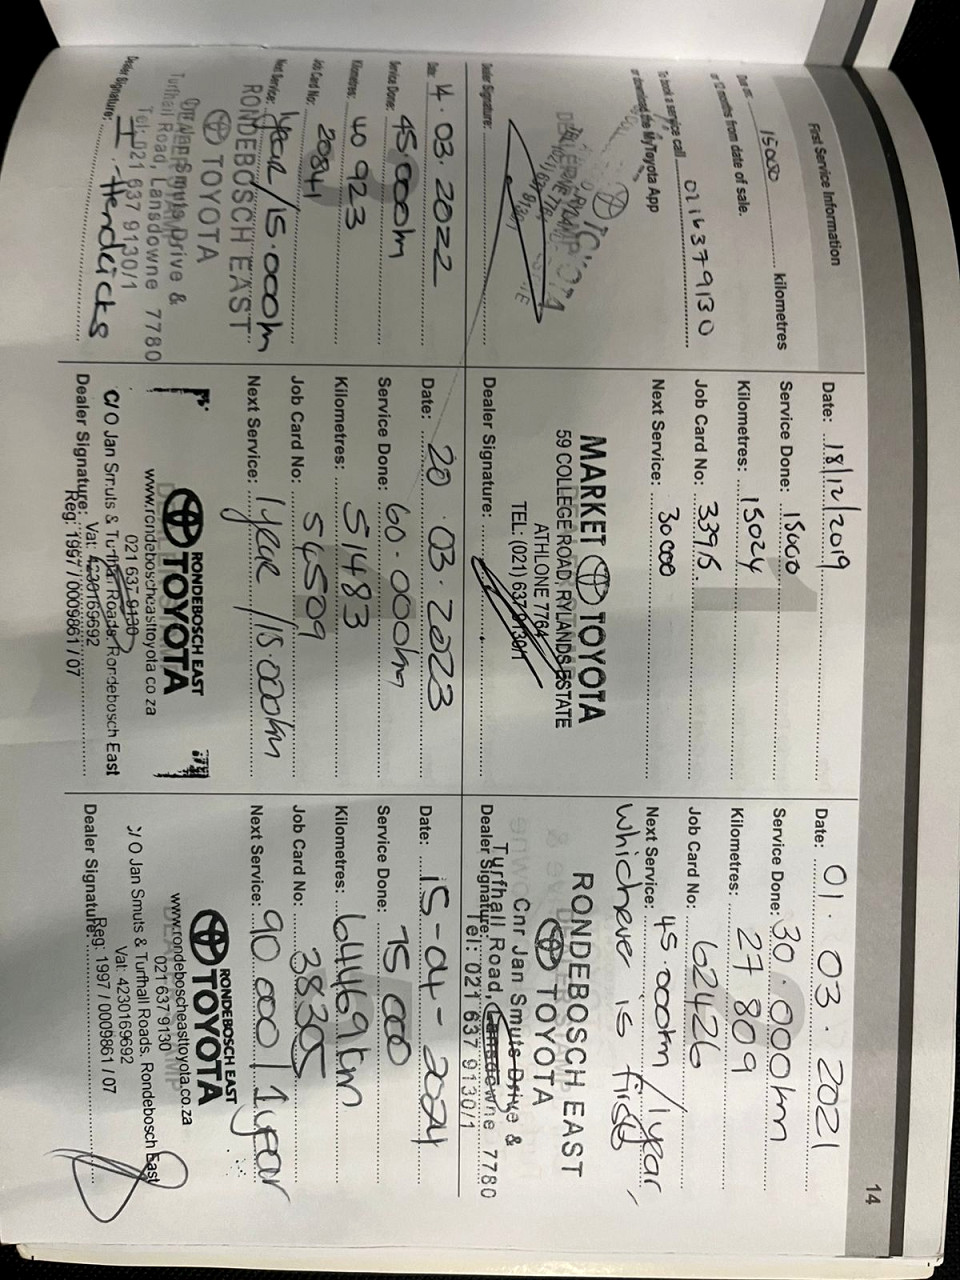 14
First Service Information
Due at: 15000 kilometres
or 12 months from date of sale.
To book a service call 0216379130
or download the MyToyota App
Dealer Signature:
Date: 18/12/2019
Service Done: 15000
Kilometres: 15024
Job Card No: 33915.
Next Service: 30000
MARKET TOYOTA
59 COLLEGE ROAD, RYLANDS ESTATE
ATHLONE 7764
TEL: (021) 637 9130/1
Dealer Signature:
Date: 01.03.2021
Service Done: 30.000km
Kilometres: 27 809
Job Card No: 62426
Next Service: 45.000km/1year,
whichever is first
RONDEBOSCH EAST
TOYOTA
Cnr Jan Smuts Drive &
Turfhall Road, Lansdowne 7780
Dealer Signature:
Tel: 021 637 9130/1
Date: 14.03.2022
Service Done: 45000km
Kilometres: 40 923
Job Card No: 20841
Next Service: 1year/15.000km
RONDEBOSCH EAST
TOYOTA
Jan Smuts Drive &
Turfhall Road, Lansdowne 7780
Tel: 021 637 9130/1
Dealer Signature: I. Hendricks
Date: 20.03.2023
Service Done: 60.000km
Kilometres: 51483
Job Card No: 54509
Next Service: 1year/15.000km
RONDEBOSCH EAST
TOYOTA
www.rondeboscheasttoyota.co za
021 637 9130
C/O Jan Smuts & Turfhall Roads, Rondebosch East
Vat: 4230169692
Dealer Signature:
Reg: 1997 / 0009861 / 07
Date: 15-04-2024
Service Done: 75 000
Kilometres: 64469km
Job Card No: 38305
Next Service: 90 000 / 1year
RONDEBOSCH EAST
TOYOTA
www.rondeboscheasttoyota.co.za
021 637 9130
C/O Jan Smuts & Turfhall Roads, Rondebosch East
Vat: 4230169692
Reg: 1997 / 0009861 / 07
Dealer Signature: